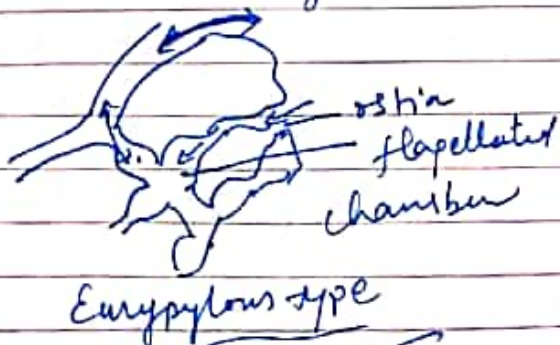 ostia
flagellated
chamber
Eurypylous type